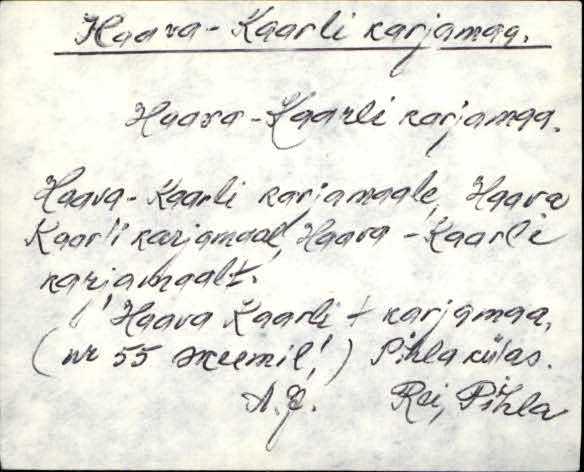 Haava-Kaarli karjamaa.
Haava-Kaarli karjamaa.
Haava-Kaarli karjamaale, Haava
Kaarli karjamaal, Haava-Kaarli
karjamaalt.
Haava Kaarli + karjamaa,
(nr 55 skeemil!) Pihla külas.
A. J. Rei, Pihla